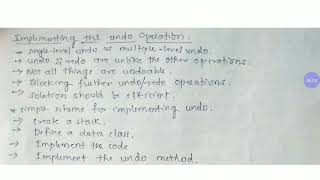 Implementing the undo Operation.
→ single-level undo vs multiple-level undo.
→ undo & redo are unlike the other operations.
→ Not all things are undoable.
→ Blocking further undo/redo operations.
→ solution should be efficient.
* simple scheme for implementing undo.
→ Create a stack.
→ Define a data class.
→ Implement the code
→ Implement the undo method.